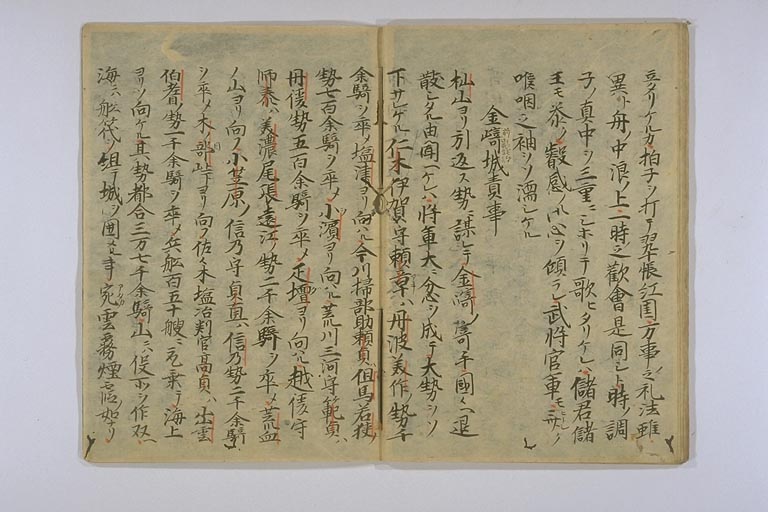 立タリケルカ拍子ヲ打テ翠帳紅閨万事之礼法雖
異ト舟中浪ノ上一時之歓會是同シト時ノ調
子ノ真中ヲ三重ニシホリテ歌ヒタリケレハ儲君儲
王モ忝ク叡感ノ御心ヲ傾ラレ武将官軍モ
喉咽之袖ヲソ濡シケル
金﨑城責事
杣山ヨリ引返ス勢ニ誤レテ金﨑ノ寄手國々ヘ退
散シタル由聞ヘケレハ将軍大ニ忿ヲ成テ大勢ヲソ
下サレケル仁木伊賀守頼章ハ丹波美作ノ勢千
余騎ヲ率メ塩津ヨリ向ハル今川掃部助頼貞ハ但馬若狭ノ
勢七百余騎ヲ率メ小濵ヨリ向ハル荒川三河守範貞ハ
丹後勢五百余騎ヲ率メ疋壇ヨリ向ハル越後守
師泰ハ美濃尾張遠江ノ勢二千余騎ヲ率メ荒血
ノ山ヨリ向フ小笠原ノ信乃守貞宗ハ信乃勢二千余騎
ヲ率メ木ノ部峠ヨリ向フ佐々木塩冶判官高貞ハ出雲
伯耆ノ勢一千余騎ヲ率メ兵舩百五十艘ニ取乗テ海上
ヨリソ向ケル其勢都合三万七千余騎山ニハ役所ヲ作双ヘ
海ニハ舩筏ヲ組テ城ヲ囲ム事宛雲霧煙霞如ナリ